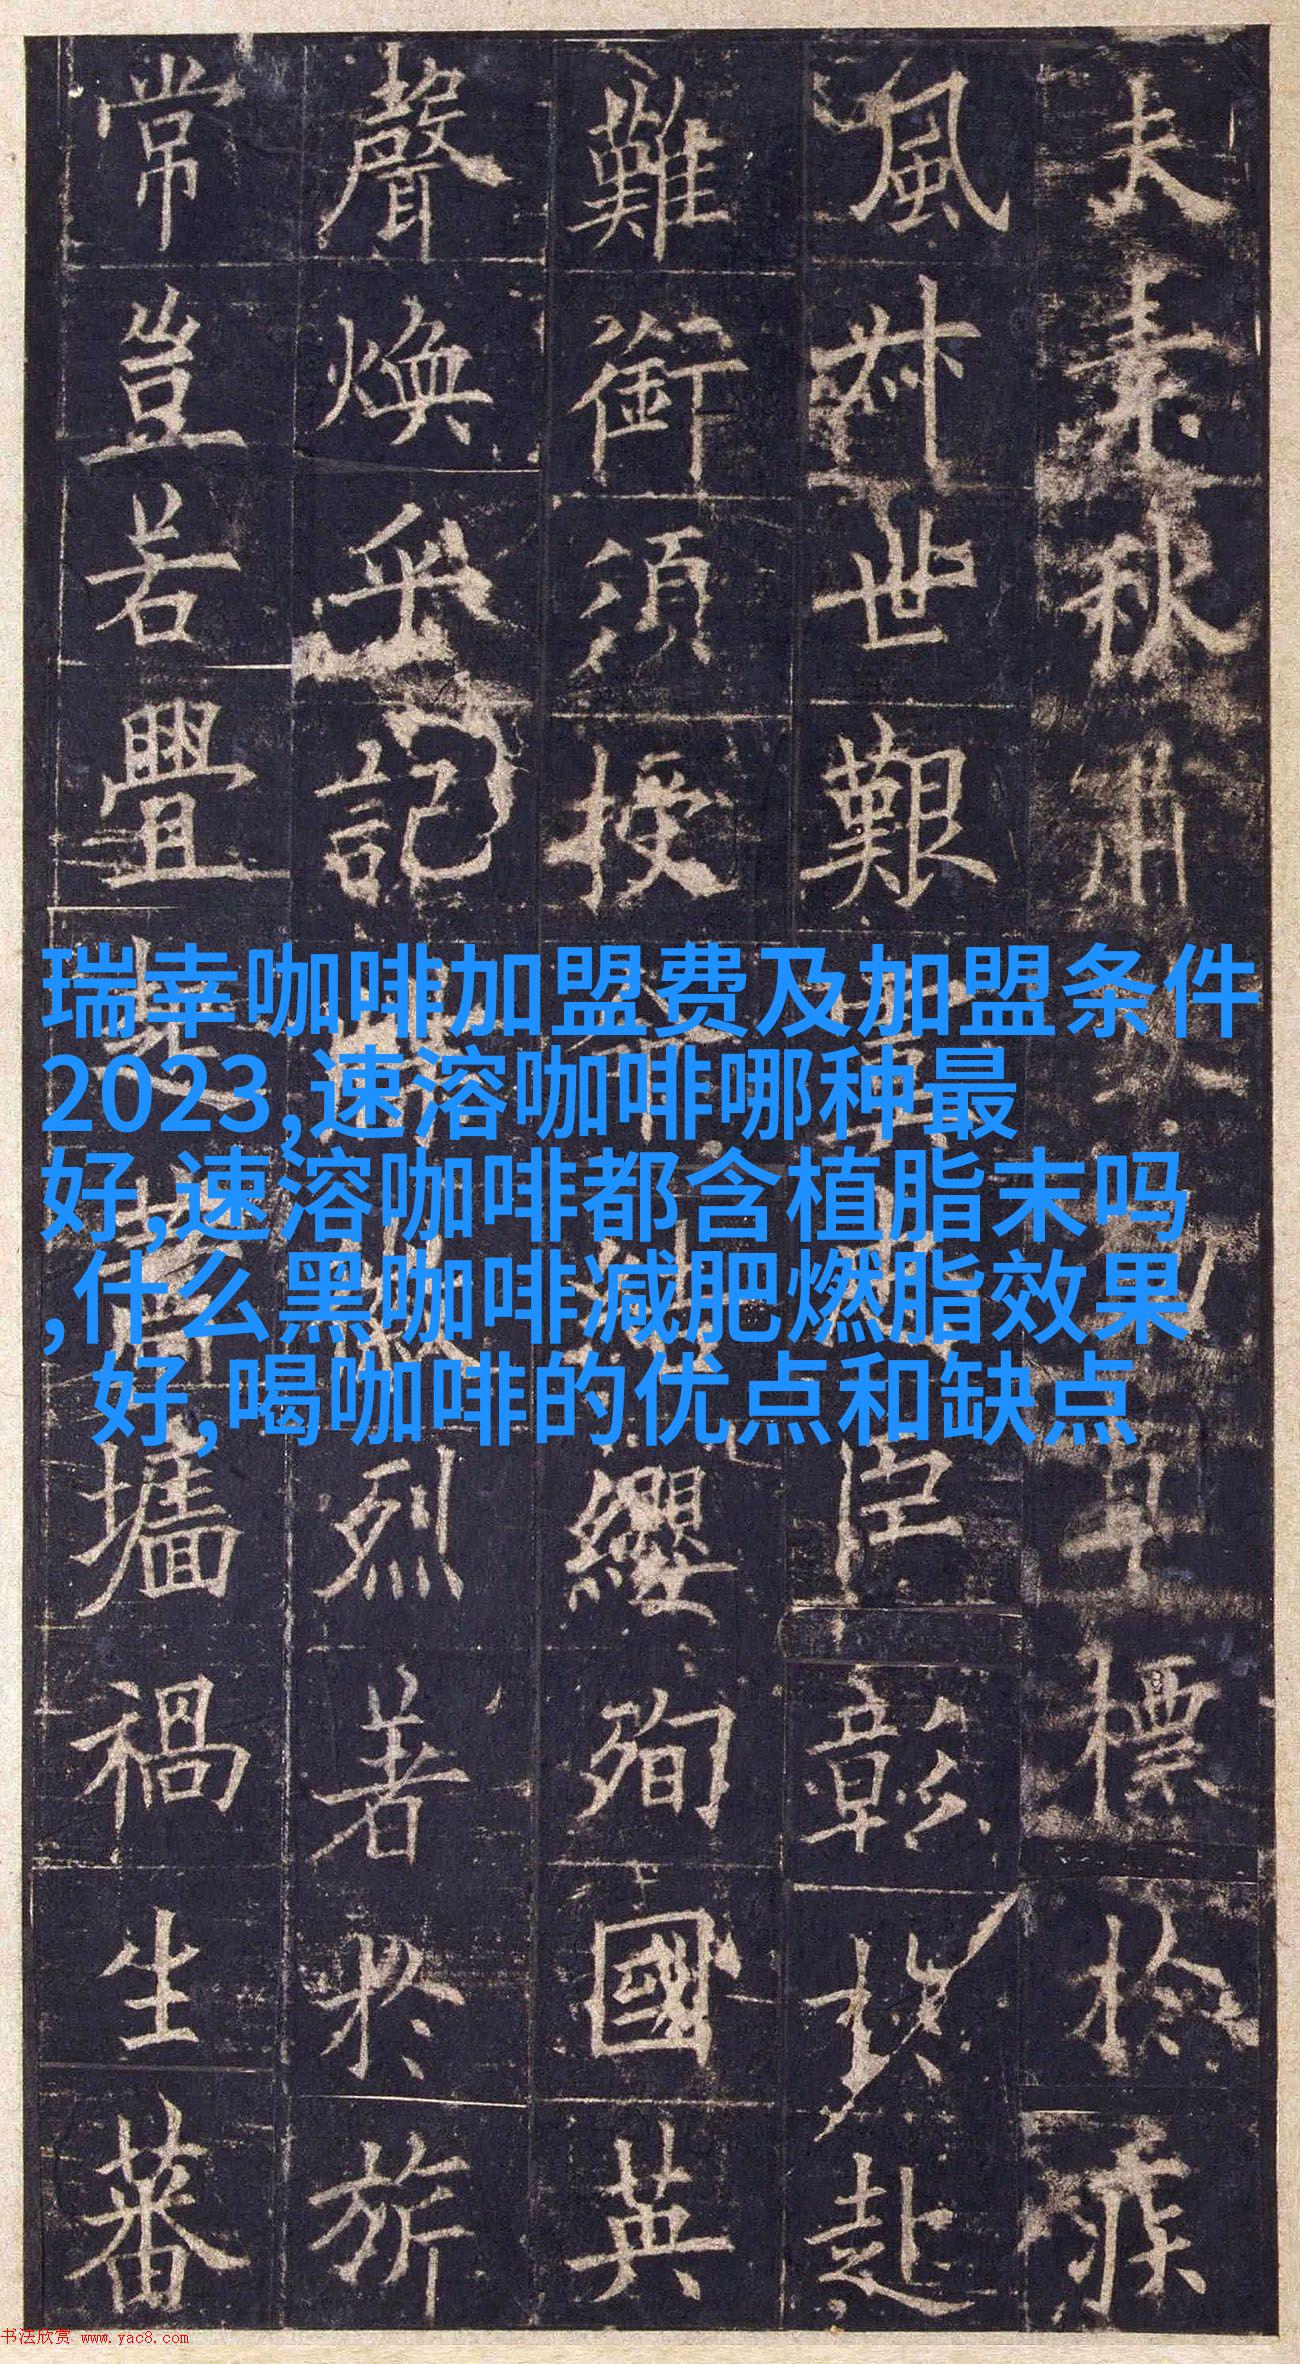 夫素秋肅
標於疾
風叔世艱
臣彰於赴
難銜須授
纓殉國英
聲煥乎記
烈著於旂
常豈若釁
墻禍生蕃
瑞幸咖啡加盟费及加盟条件
2023,速溶咖啡哪种最
好,速溶咖啡都含植脂末吗
,什么黑咖啡减肥燃脂效果
好,喝咖啡的优点和缺点
书法欣赏 www.yac8.com